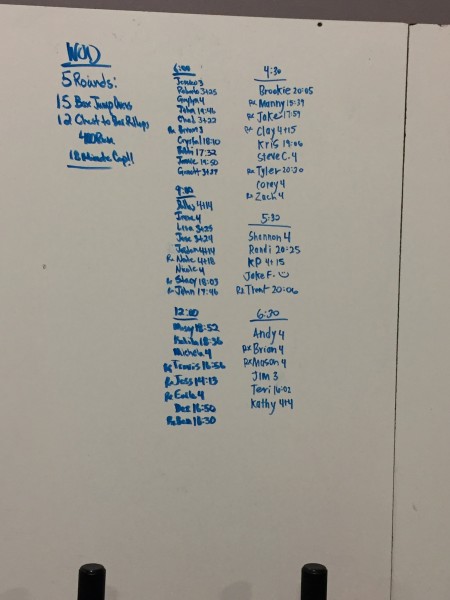 WOD
5 Rounds:
15 Box Jump Overs
12 Chest to Bar Pullups
400 Run
18 Minute Cap!!
6:00
3
3+25
4
John 19:46
Chad 3+22
Rx Brian 3
Crystal 18:10
17:32
Jamie 19:50
Garrett 3+27
9:00
4+14
Irene 4
Lisa 3+25
Jose 3+24
Jordan 4+14
Rx Nate 4+18
Nicole 4
Rx Stacy 18:03
Rx John 17:46
12:00
Missy 18:52
18:36
Michele 4
Rx Travis 16:56
Rx Jess 14:13
Rx 4
16:50
Rx Ben 18:30
4:30
Brookie 20:05
Rx Manny 15:39
Rx Jake 17:59
Rx Clay 4+15
Kris 19:06
Steve C. 4
Rx Tyler 20:30
Corey 4
Rx Zach 4
5:30
Shannon 4
Randi 20:25
KP 4+15
Jake F.
Rx Trent 20:06
6:30
Andy 4
Rx Brian 4
Rx Mason 4
Jim 3
Teri 16:02
Kathy 4+4